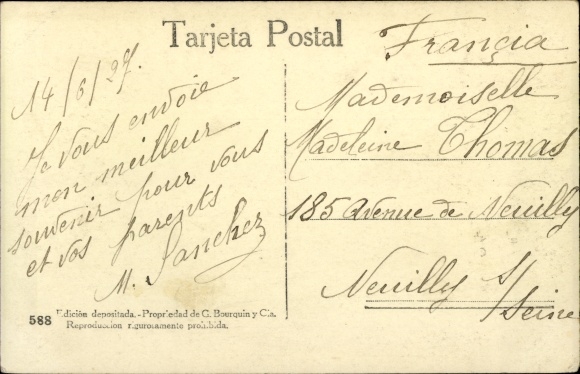 Tarjeta Postal
14/6/27.
Je vous envoie
mon meilleur
souvenir pour vous
et vos parents
M. Sanchez
588 Edición depositada. - Propriedad de G. Bourquin y Cia.
Reproducción rigurosamente prohibida.
Françia
Mademoiselle
Madeleine Thomas
185 Avenue de Neuilly
Neuilly s/
Seine